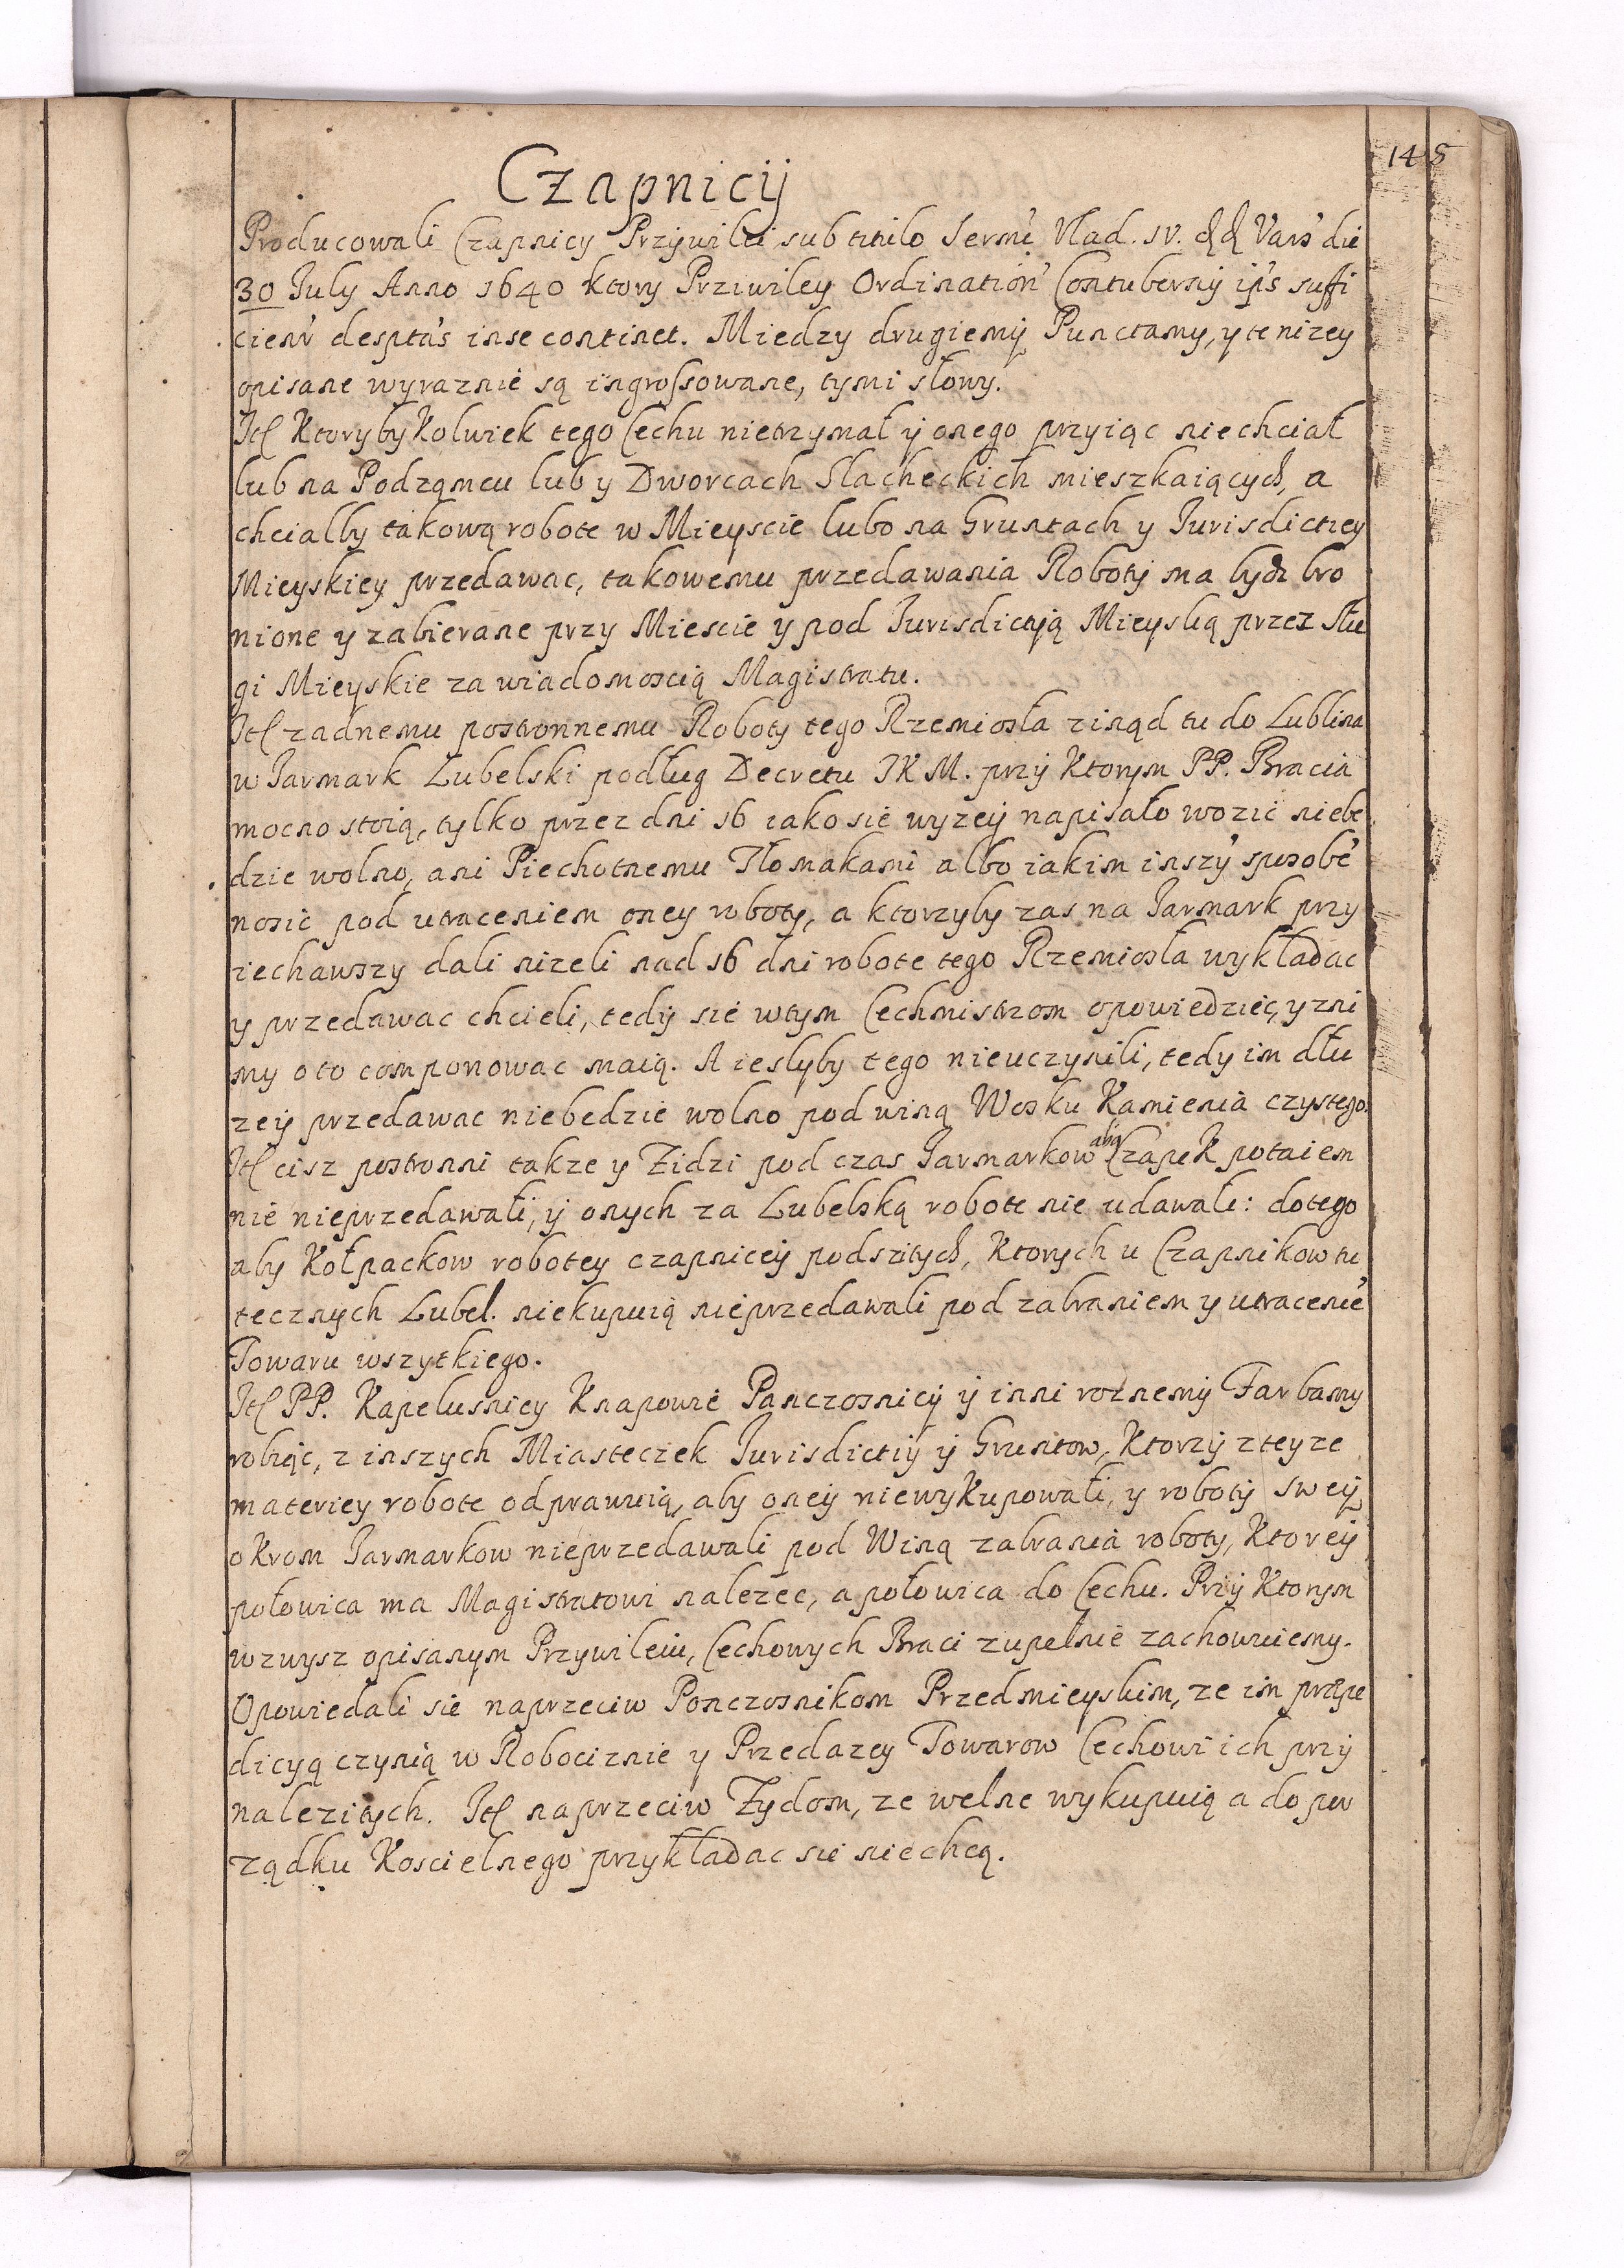 145
Czapnicij
Producowali Czapnicy Przywilei sub titulo Sermi Vlad. IV. dd Vars' die
30 July Anno 1640 ktory Przivviley Ordination' Contuberny ip's suffi
cienr' despta's inse continet. Miedzy drugiemij Punctamy, y te nizey
opisane wyraznie są ingrossowane, tymi słowy.
Itl Ktoryby Kolwiek tego Cechu nietrzymał ij onego przyiąc niechciał
lub na Podzamcu lub y Dworcach Slacheckich mieszkaiących, a
chciałby takową robote w Mieyscie lubo na Gruntach y Jurisdictiey
Mieyskiey przedawac, takowemu przedawania Robotij ma bydz bro
nione y zabierane przy Miescie y pod Jurisdictyą Mieyską przez Słu
gi Mieyskie za wiadomoscią Magistratu.
Itl zadnemu postronnemu Roboty tego Rzemiosła zinąd tu do Lublina
w Jarmark Lubelski podług Decretu JKM. przij Ktorym PP. Bracia
mocno stoią, tylko przez dni 16 iako sie wyzeij napisało wozic niebe
dzie wolno, ani Piechotnemu Tłomakami albo iakim inszy' sposobe'
nosic pod utraceniem oney roboty, a ktorzyby zas na Jarmark przy
iechawszy dali nizeli nad 16 dni robote tego Rzemiosła wykładac
y przedawac chcieli, tedij sie wtym Cechmistrzom opowiedziec, y zni
my oto componowac maią. A ieslyby tego nieuczynili, tedy im dłu
zeij przedawac niebedzie wolno pod winą Wosku Kamienia czystego.
Itl cisz postronni takze y Zidzi pod czas Jarmarkow aby Czapek potaiem
nie nieprzedawali, ij onych za Lubelską robote nie udawali: dotego
aby Kołpackow robotey czapniceij podszitych, Ktorych u Czapnikow tu
tecznych Lubel. niekupuią nieprzedawali pod zabraniem y utracenie'
Towaru wszytkiego.
Itl PP. Kapelusnicy Knapowie Panczosnicij ij inni roznemij Farbamy
robiąc, z inszych Miasteczek Jurisdictiij ij Gruntow, Ktorzij z teyze
materiey robote odprawuią, aby oneij niewykupowali, y robotij sweij
okrom Jarmarkow nieprzedawali pod Winą zabrania roboty, Ktoreij
połowica ma Magistratowi nalezec, a połowica do Cechu. Przij Ktorym
wzwysz opisanym Przywileiu, Cechowych Braci zupełnie zachowuiemy.
Opowiedali sie naprzeciw Ponczosnikom Przedmieyskim, ze im præpe
dicyą czynią w Robociznie y Przedazey Towarow Cechowi ich przij
nalezitych. Itl naprzeciw Zydom, ze wełne wykupuią a do po
rządku Koscielnego przykładac sie niechcą.